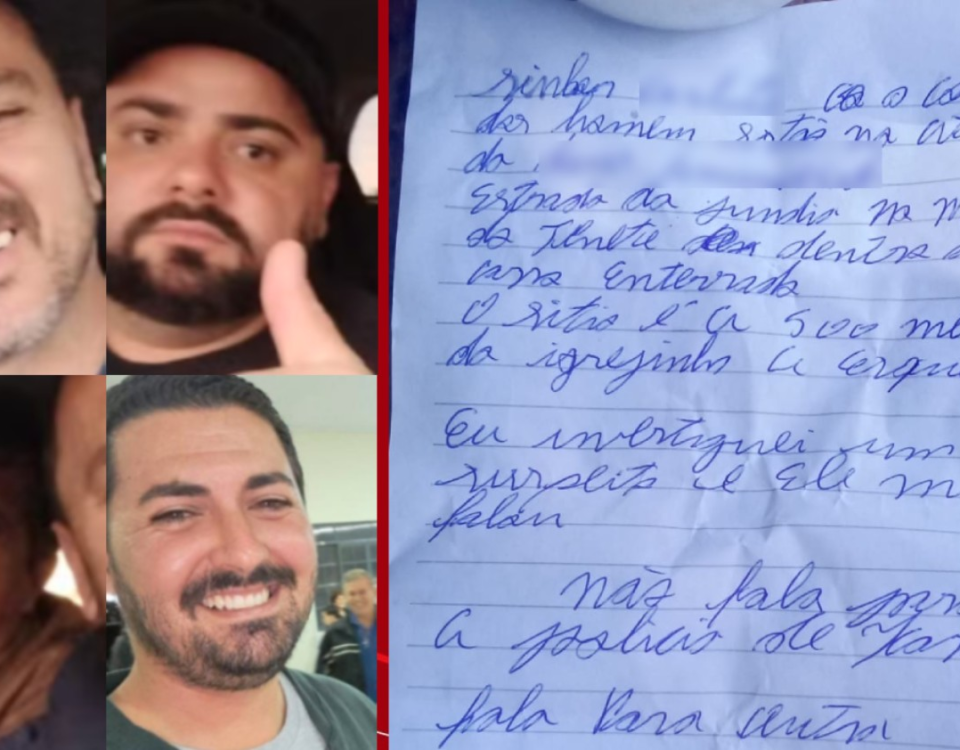 senhor co o co
dos homem estão na
da
Estrada da jundia na m
da Tenete dentra
casa Enterrada
O sitio é a 500 me
da igrejinha a Erqu
Eu investiguei um
surpeito e Ele m
falou
não fala
a policia de
fala Para outra